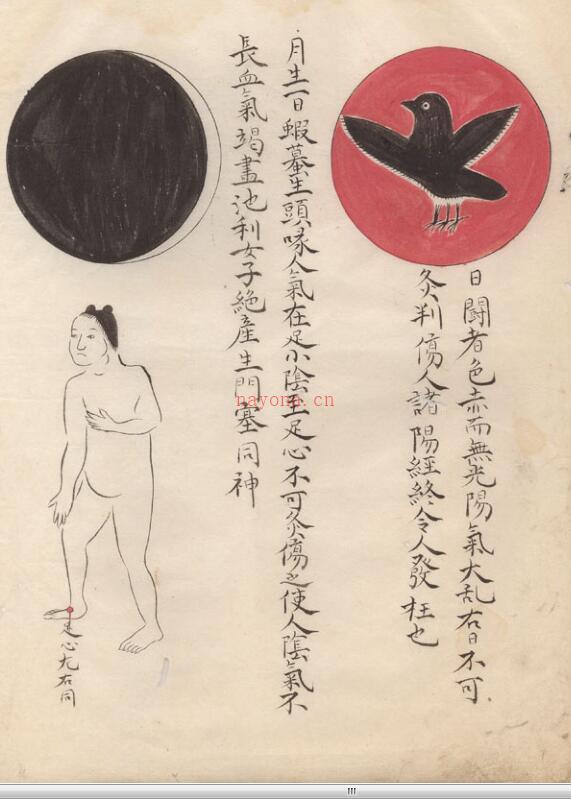 日鬪者色赤而無光陽氣大乱右日不可
灸判傷人諸陽經終令人發枉也
月生一日蝦蟇生頭喙人氣在足小陰至足心不可灸傷之使人陰氣不
長血氣竭盡池利女子絶産生門塞同神
足心左右同
nayona.cn